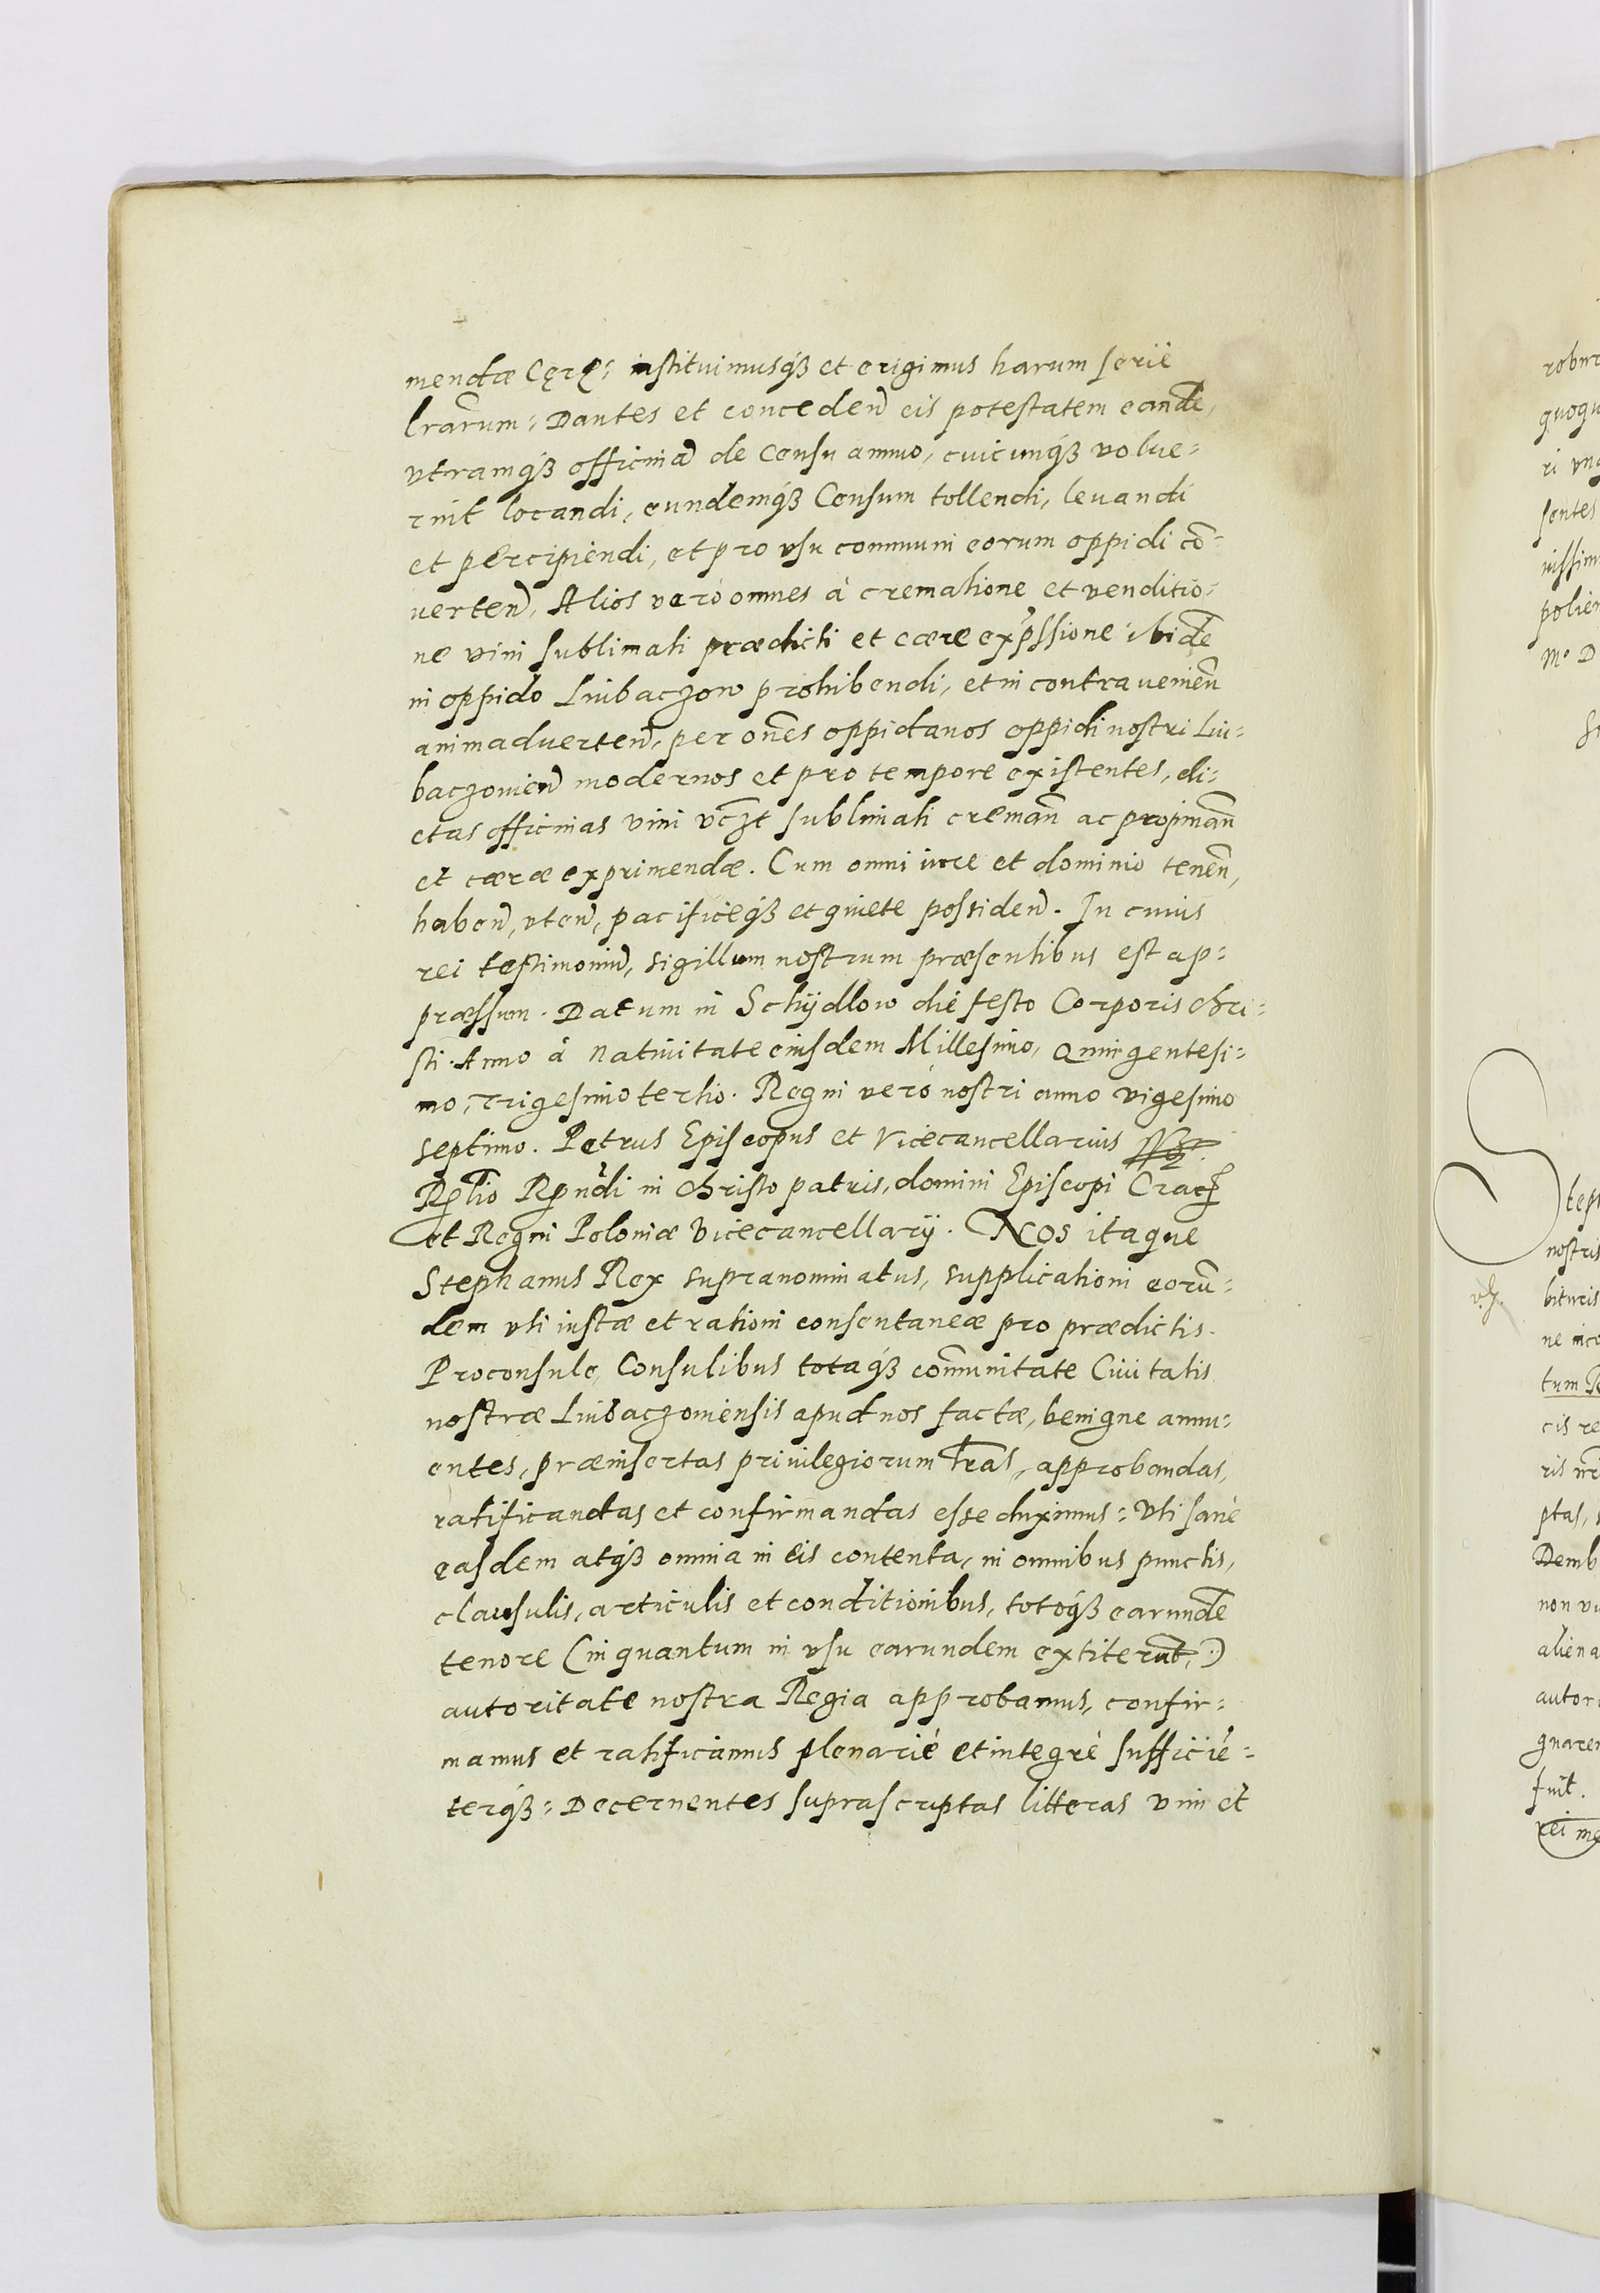 mendæ Cęrę: instituimusq́ꝫ et erigimus harum serie
lrārum: Dantes et conceden̄ eis potestatem eandē,
vtramq́ꝫ officinā de Censu annuo, cuicunq́ꝫ volue:
rint locandi, eundemq́ꝫ Censum tollendi, leuandi
et percipiendi, et pro vsu communi eorum oppidi cō:
uerten̄, Alios verò omnes à crematione et venditio:
ne vini sublimati prædicti et cæræ exp̄ssione ibidē
in oppido Liubaczow prohibendi, et in contrauenien̄
animaduerten̄, per oēs oppidanos oppidi nostri Liu:
baczouien̄ modernos et pro tempore existentes, di:
ctas officinas vini vc̄ꝫt sublimati creman̄ ac propinan̄
et cæræ exprimendæ. Cum omni iure et dominio tenen̄,
haben̄, vten̄, pacificeq́ꝫ et quiete possiden̄. In cuius
rei testimoniū, sigillum nostrum præsentibus est ap:
præssum. Datum in Schÿdlow die festo Corporis Chri:
sti. Anno à Natiuitate eiusdem Millesimo, Quingentesi:
mo, Trigesimo tertio. Regni verò nostri anno vigesimo
septimo. Petrus Episcopus et Vicecancellarius
Rel̄io Rn̄di in Christo patris, domini Episcopi Crac̄
et Regni Poloniæ Vicecancellarÿ. Nos itaque
Stephanus Rex supranominatus, supplicationi eorū:
dem vti iustæ et rationi consentaneæ pro prædictis.
Proconsule, Consulibus totaq́ꝫ com̄unitate Ciuitatis
nostræ Liubaczouiensis apud nos factæ, benigne annu:
entes, præinsertas priuilegiorum lr̄as, approbandas,
ratificandas et confirmandas esse duximus: Vti sanè
easdem atq́ꝫ omnia in eis contenta, in omnibus punctis,
clausulis, articulis et conditionibus, totoq́ꝫ earundē
tenore (in quantum in vsu earundem extiterunt,)
autoritate nostra Regia approbamus, confir:
mamus et ratificamus plenariè et integrè sufficiē:
terq́ꝫ: Decernentes suprascriptas litteras vim et
robur
ri
sentes
nissim
polien
Mo D
Step
nostris
bituris
ne inco
tum R
cis re
ptas,
Demb
non vu
aliena
autor
gnaren
fuit.
rei me